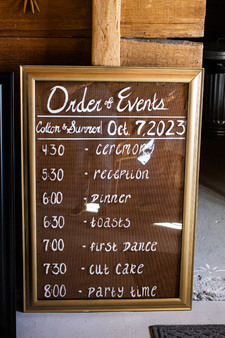 Order of Events
Colton & Summer Oct 7, 2023
4:30 - ceremony
5:30 - reception
6:00 - Dinner
6:30 - toasts
7:00 - first Dance
7:30 - cut cake
8:00 - Party time